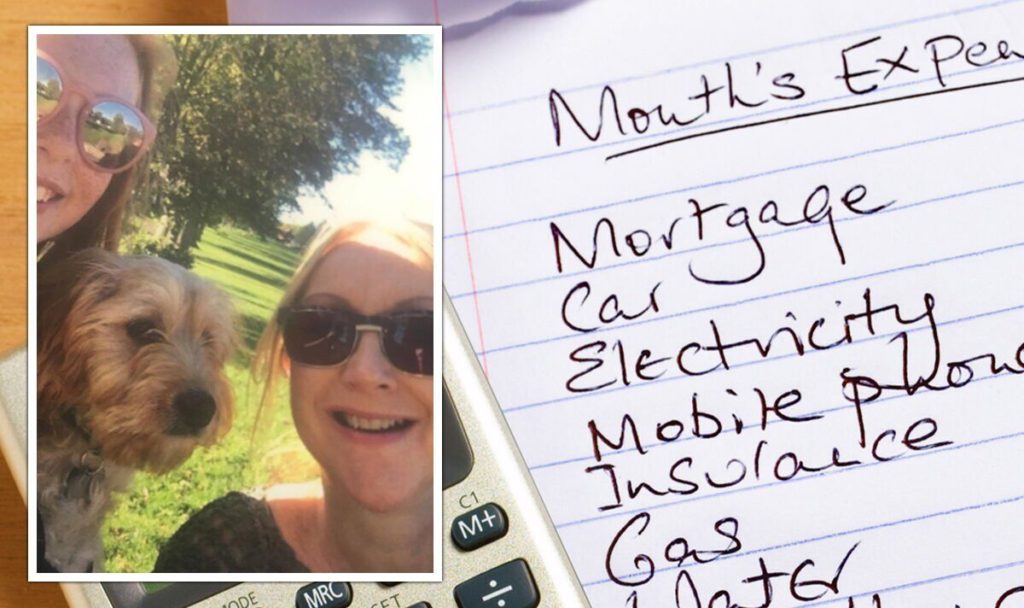 Month's Expen
Mortgage
Car
Electricity
Mobile phone
Insurance
Gas
Water
C1
M+
÷
MODE
MRC
SET